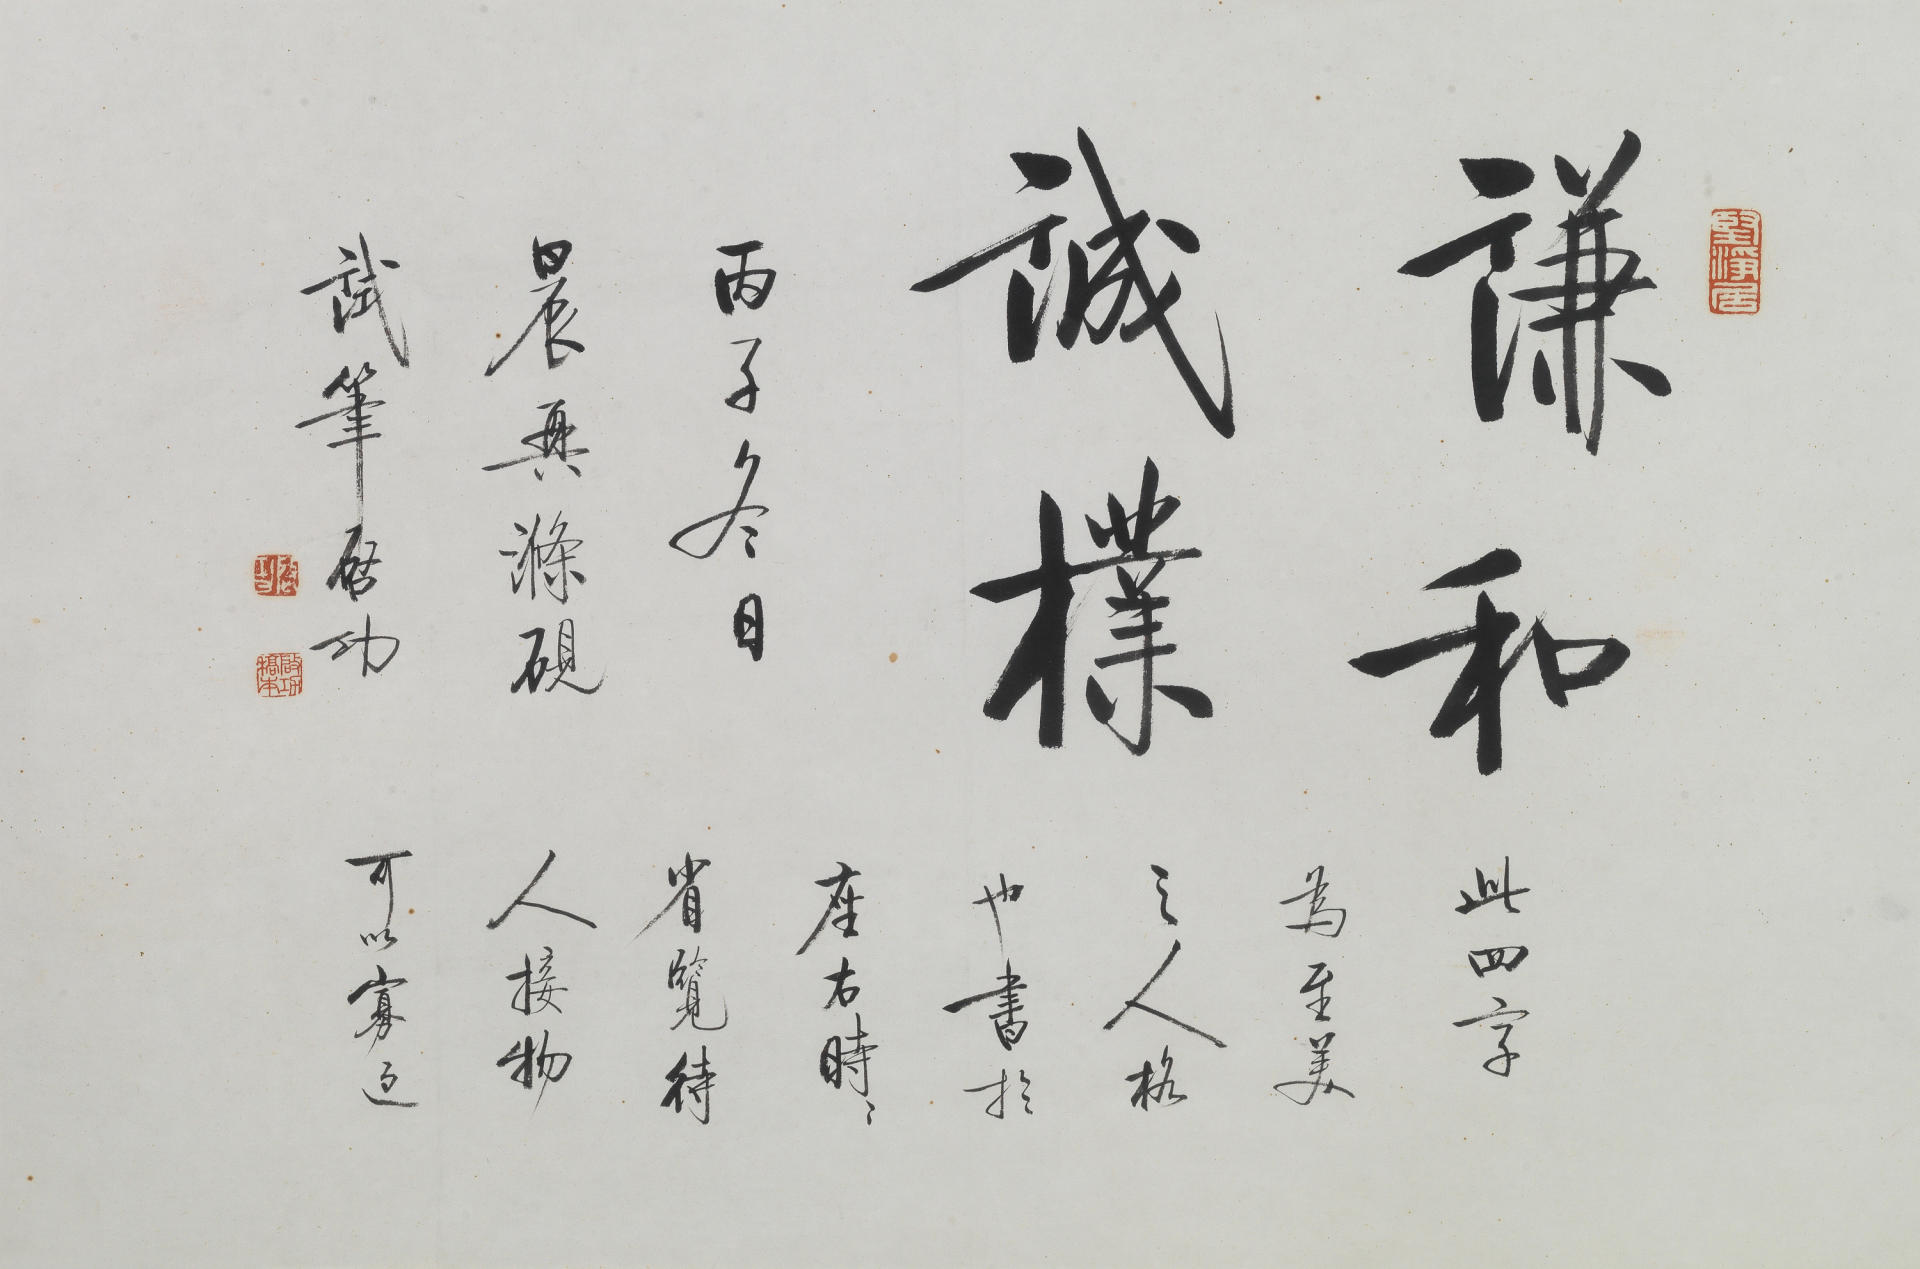 堅淨居
謙和
誠樸
丙子冬日
晨興滌硯
試筆啓功
此四字
為至美
之人格
也書於
座右時〻
省覽待
人接物
可以寡過